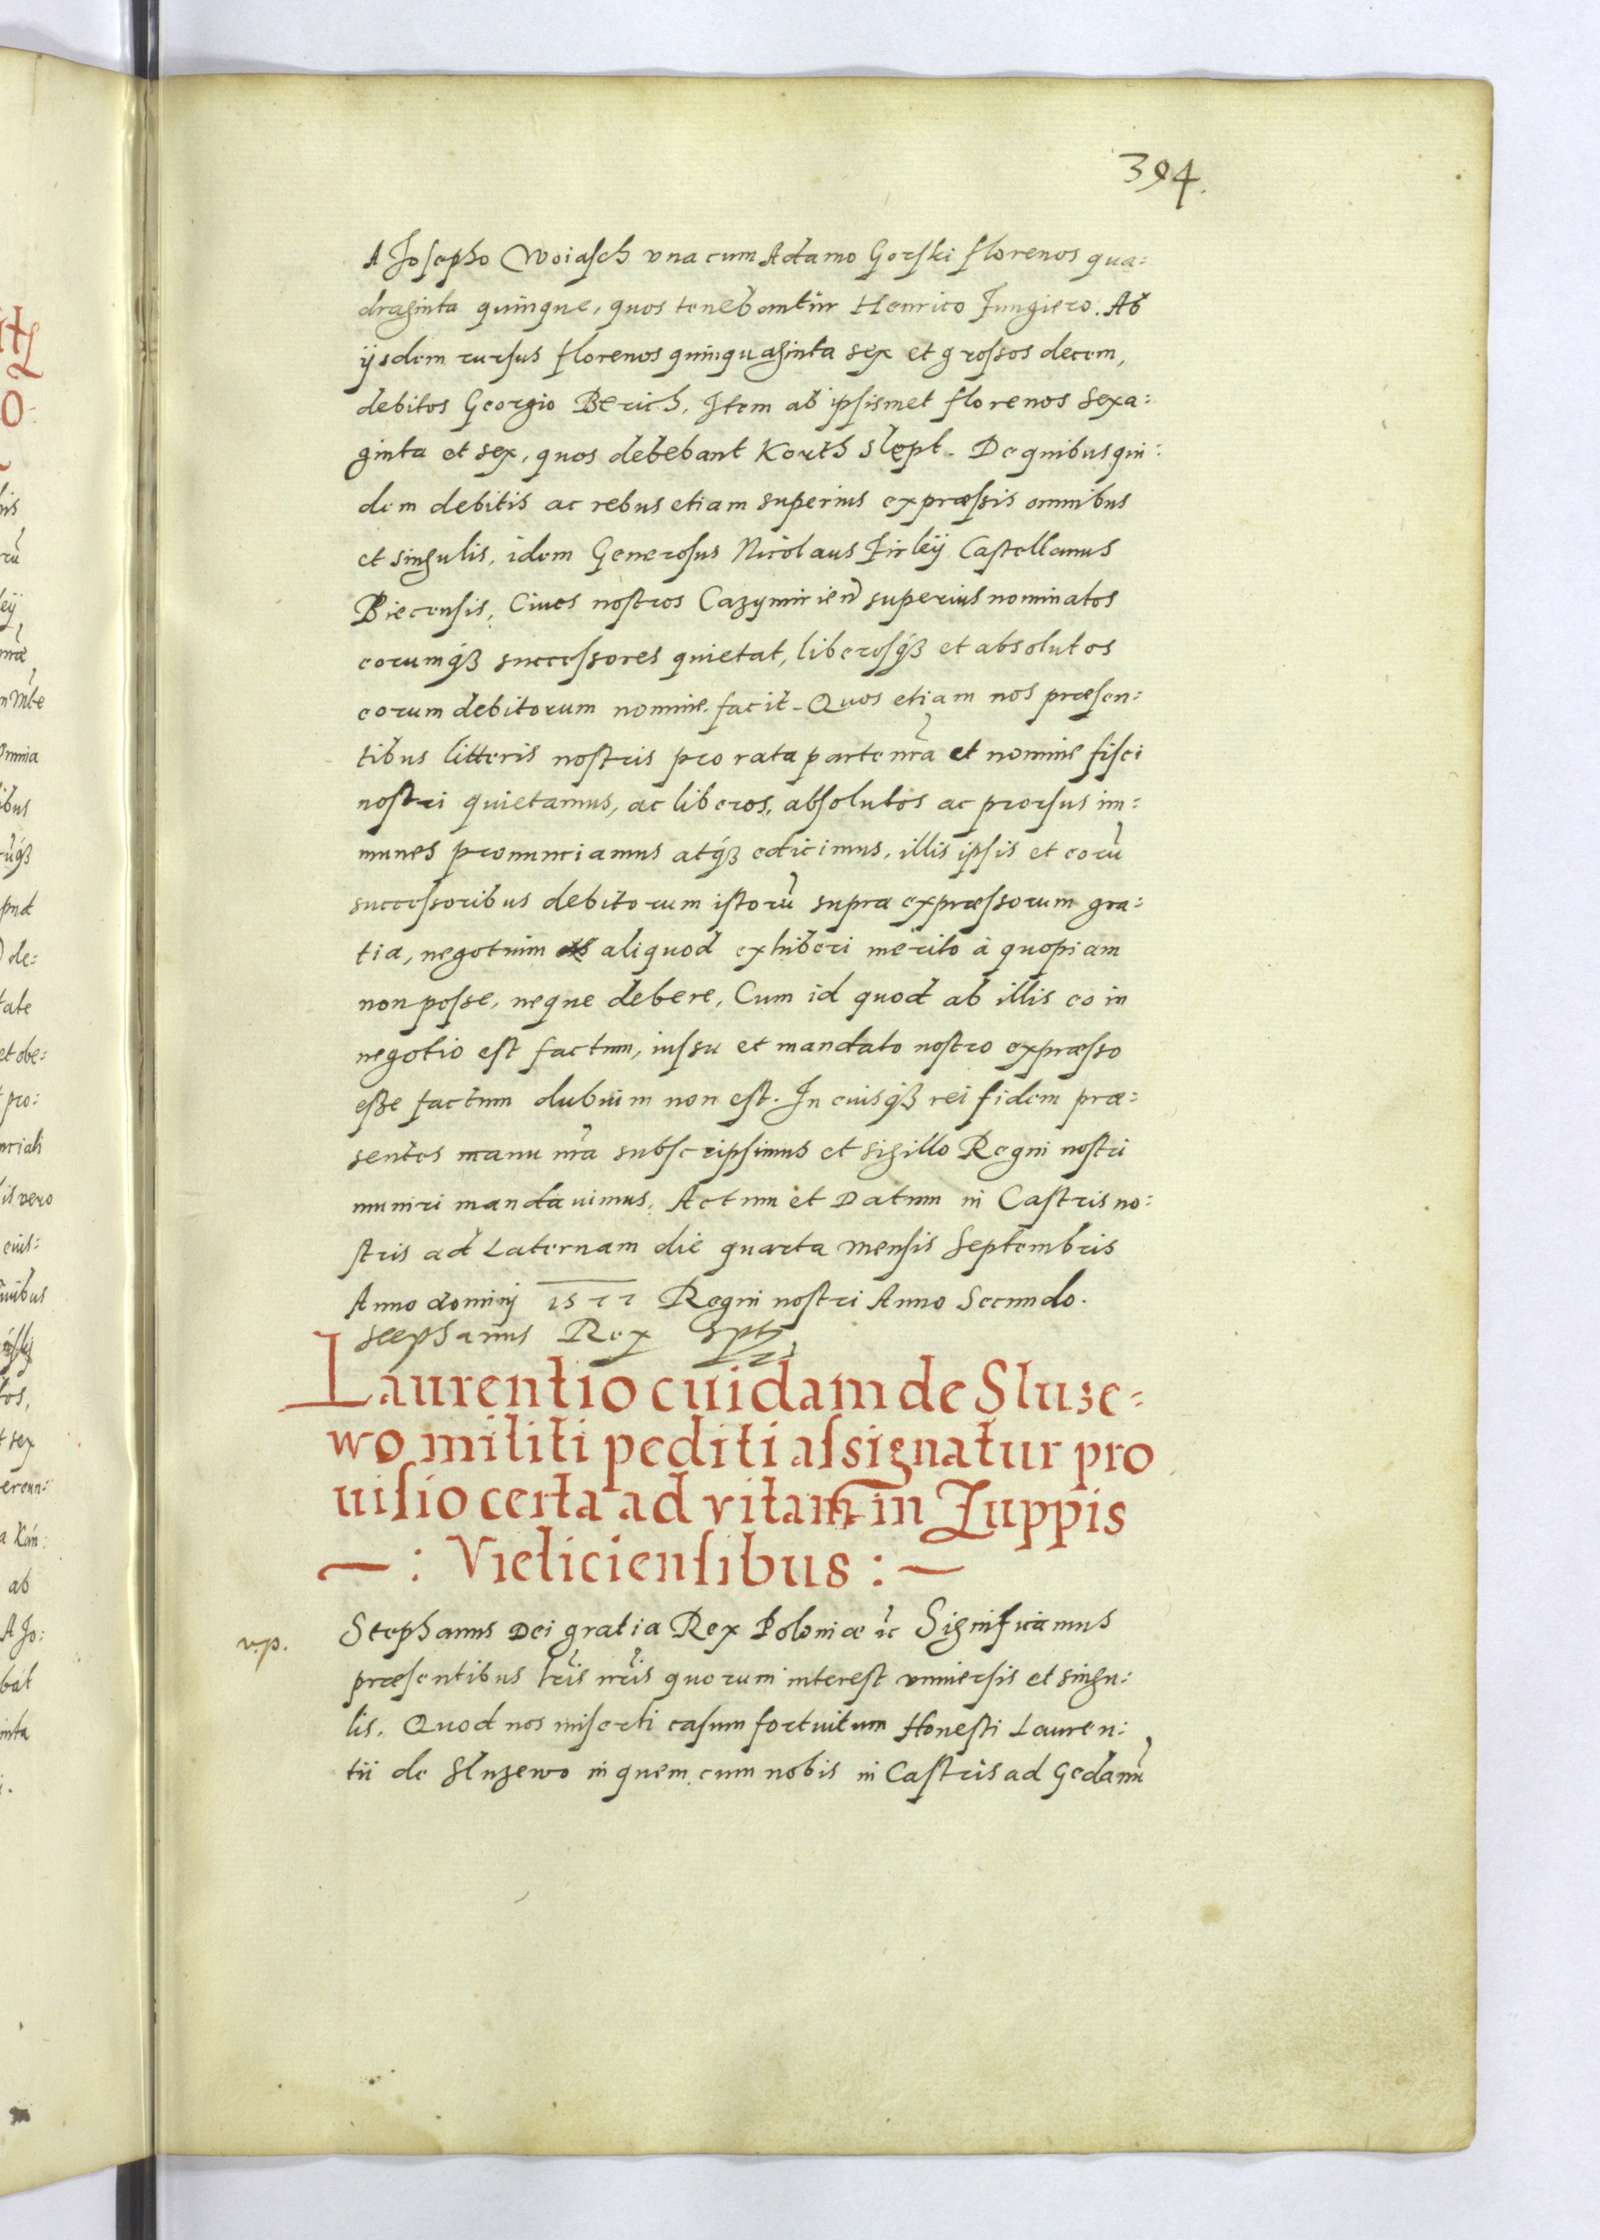 394.
A Josepho Woiasch vna cum Adamo Gorski florenos qua=
draginta quinque, quos tenebantur Henrico Jungiero. Ab
ijsdem rursus florenos quinquaginta sex et grossos decem,
debitos Georgio Berich. Item ab ipsismet florenos sexa=
ginta et sex, quos debebant Korth Slept. De quibus qui=
dem debitis ac rebus etiam superius expræssis omnibus
et singulis, idem Generosus Nicolaus Firleij Castellanus
Biecensis, Ciues nostros Cazymirien̄ superius nominatos
eorumqꝫ successores quietat, liberosqꝫ et absolutos
eorum debitorum nomine facit. Quos etiam nos præsen=
tibus litteris nostris pro rata parte nr̃a et nomine fisci
nostri quietamus, ac liberos, absolutos ac prorsus im=
munes pronunciamus atqꝫ edicimus, illis ipsis et eorū
successoribus debitorum istorū supra expræssorum gra=
tia, negotium aliquod exhiberi merito à quopiam
non posse, neque debere, Cum id quod ab illis eo in
negotio est factum, iussu et mandato nostro expræsso
esse factum dubium non est. In cuiusqꝫ rei fidem præ=
sentes manu nr̃a subscripsimus et sigillo Regni nostri
muniri mandauimus. Actum et Datum in Castris no=
stris ad Laternam die quarta mensis Septembris
Anno dominj 1577 Regni nostri Anno Secundo.
Stephanus Rex sspt
Laurentio cuidam de Sluze=
wo militi pediti assignatur pro
uisio certa ad vitam in Zuppis
— : Vieliciensibus : —
v.p.
Stephanus Dei gratia Rex Poloniæ ic̃ Significamus
præsentibus lr̃is nr̃is quorum interest vniuersis et singu=
lis. Quod nos miserti casum fortuitum Honesti Lauren=
tii de Sluzewo in quem cum nobis in Castris ad Gedanū